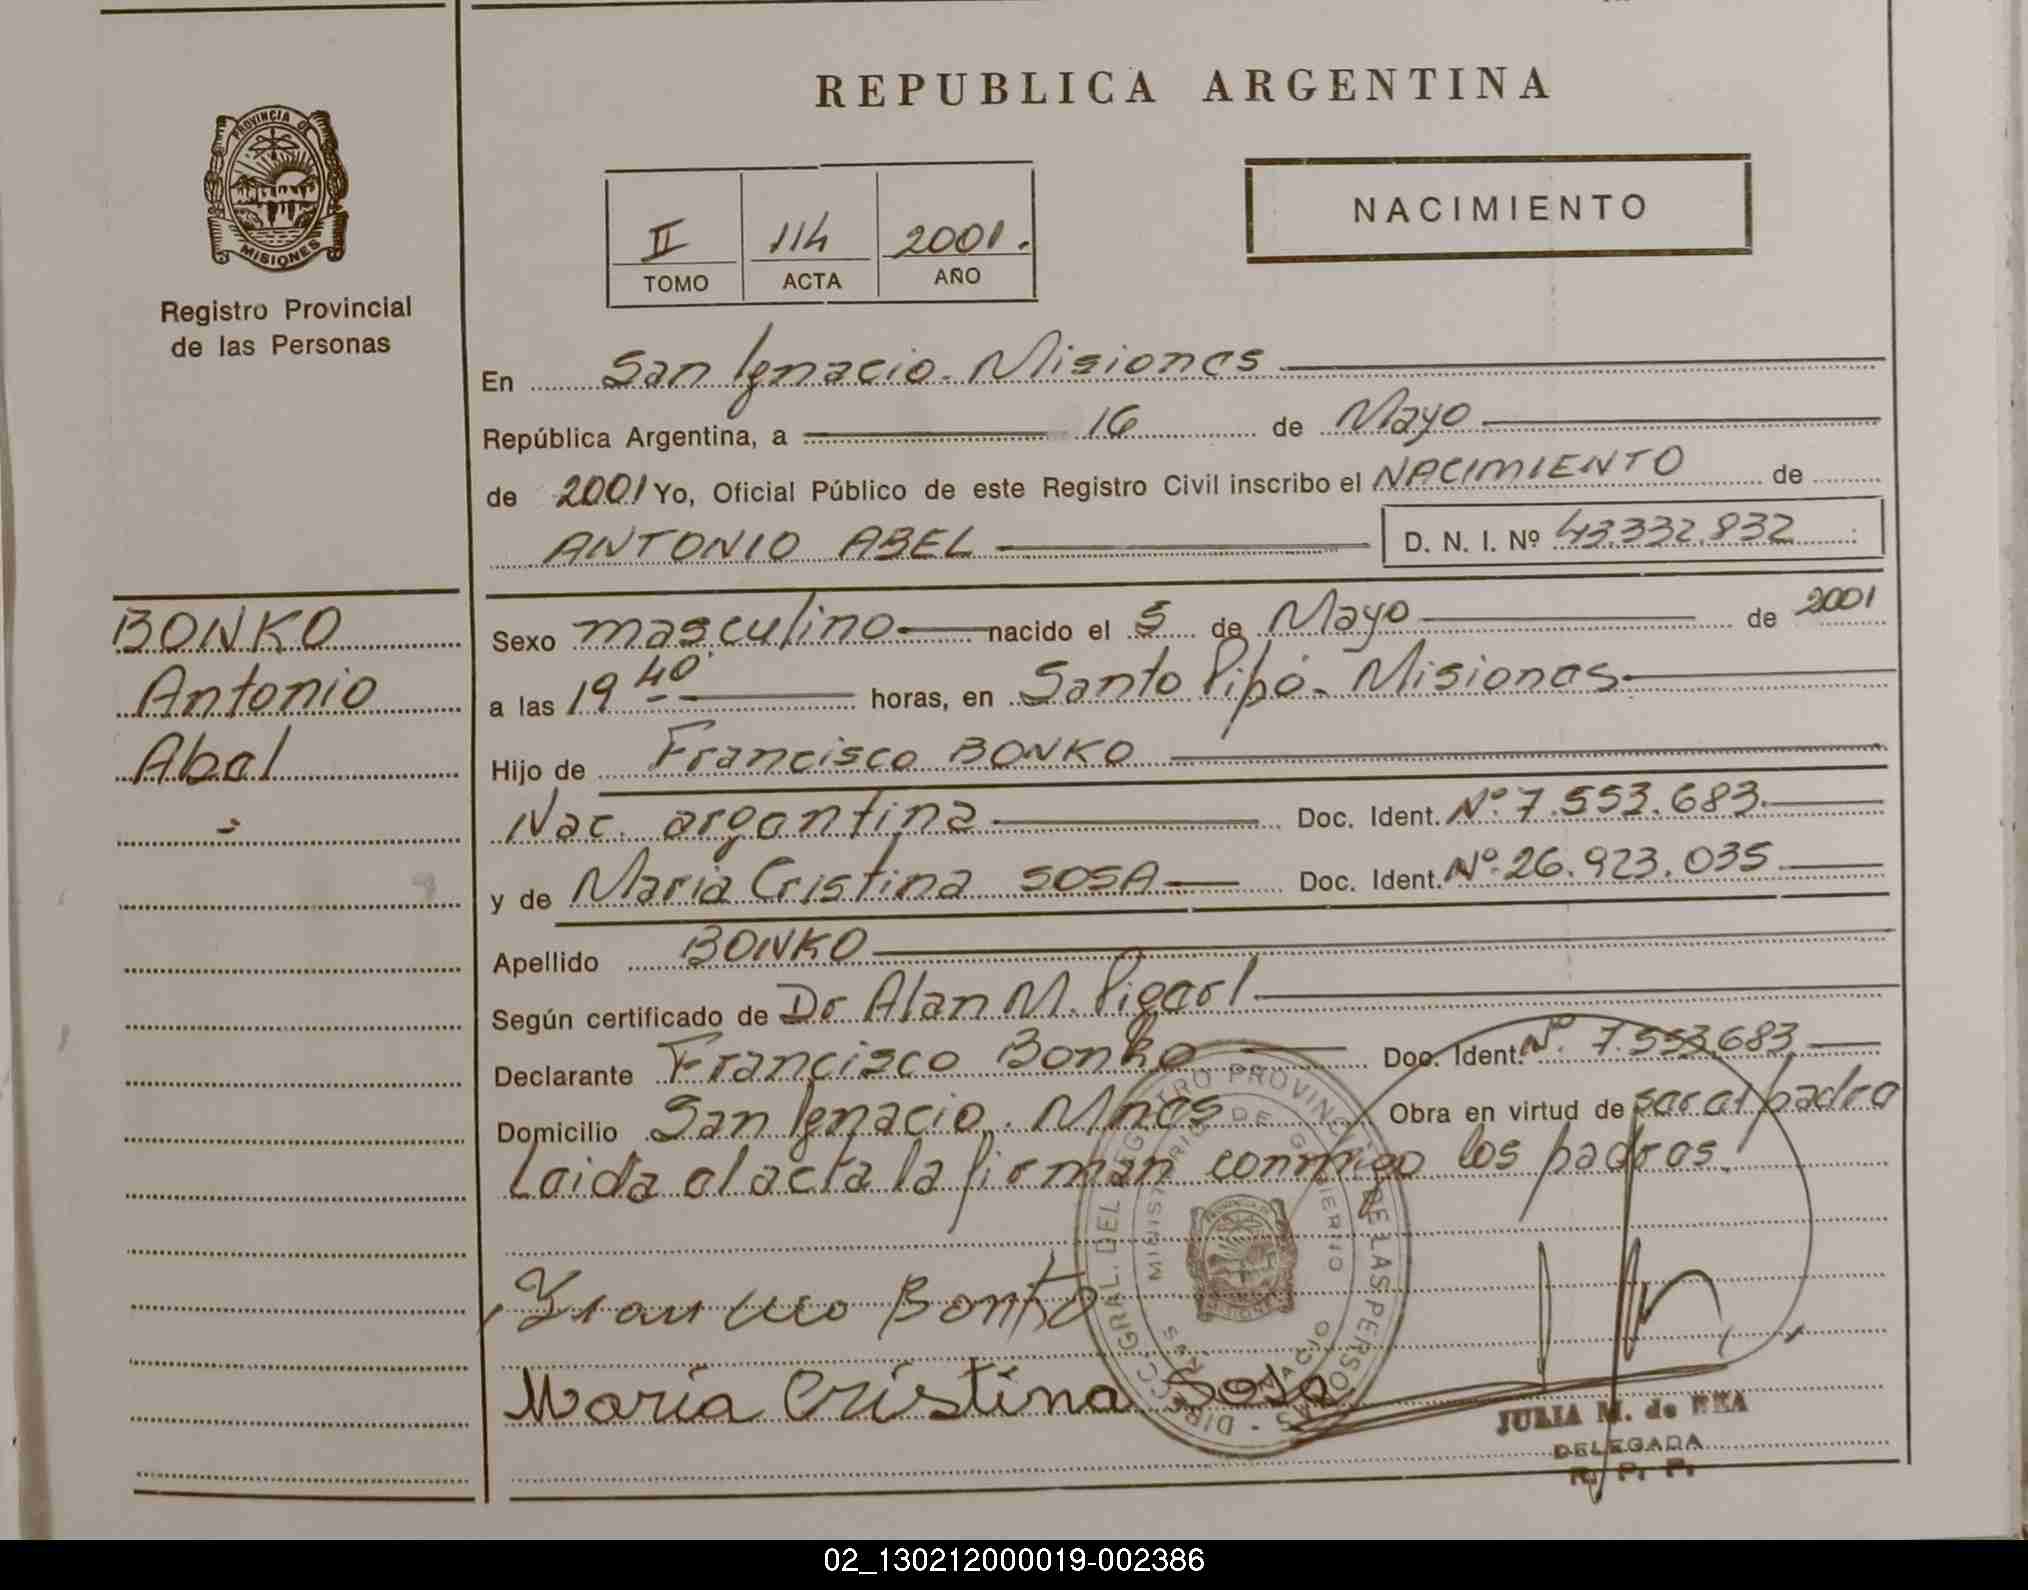 REPUBLICA ARGENTINA
PROVINCIA DE
MISIONES
Registro Provincial
de las Personas
II 114 2001.
TOMO ACTA AÑO
NACIMIENTO
En San Ignacio. Misiones
República Argentina, a 16 de Mayo
de 2001 Yo, Oficial Público de este Registro Civil inscribo el NACIMIENTO de
ANTONIO ABEL D. N. I. Nº 43.332.832
BONKO
Antonio
Abel
Sexo masculino nacido el 5 de Mayo de 2001
a las 19 40' horas, en Santo Pipó. Misiones
Hijo de Francisco BONKO
Nac. argentina Doc. Ident. Nº 7.553.683
y de Maria Cristina SOSA Doc. Ident. Nº 26.923.035
Apellido BONKO
Según certificado de Dr Alan M.
Declarante Francisco Bonko Doc. Ident. Nº 7.553.683
Domicilio San Ignacio. Mnes Obra en virtud de ser el padre
Leida el acta la firman conmigo los padres.
Francisco Bonko
Maria Cristina Sosa
DIRECC. GRAL. DEL REGISTRO PROVINCIAL DE LAS PERSONAS
MINISTERIO DE GOBIERNO
JULIA M. de REA
DELEGADA
R. P. P.
02_130212000019-002386